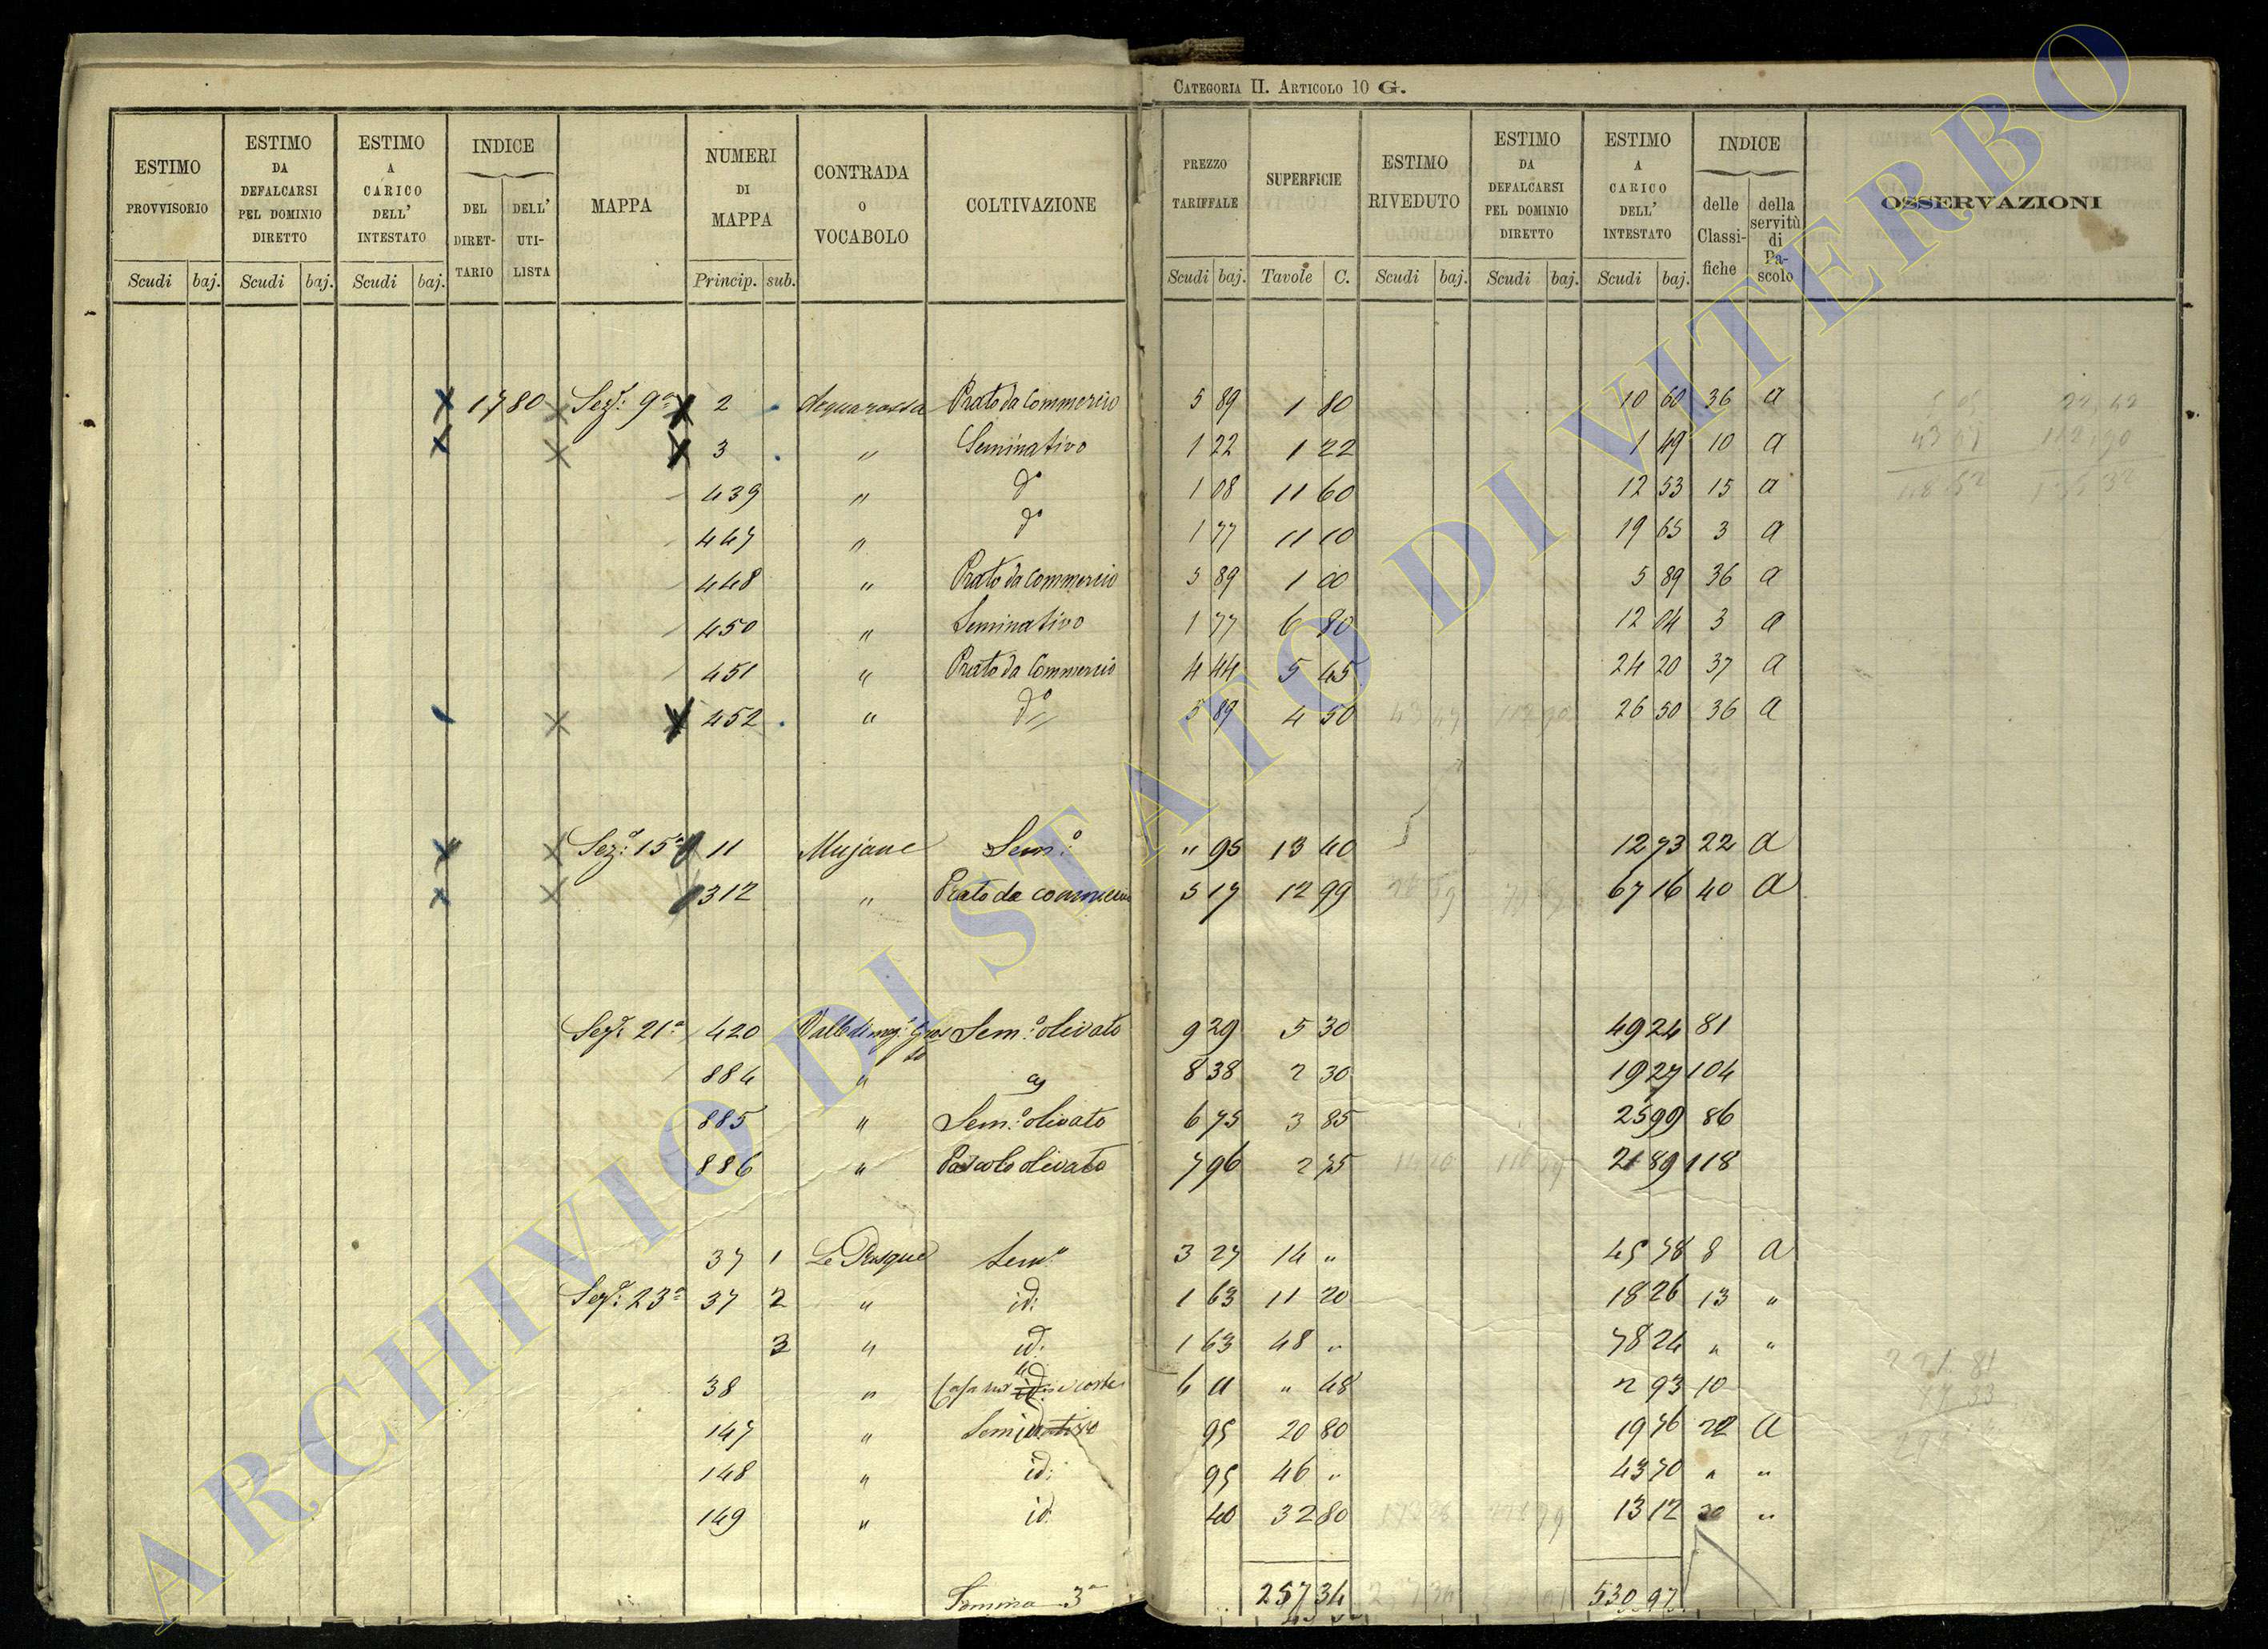 CATEGORIA II. ARTICOLO 10 G.
ESTIMO PROVVISORIO Scudi baj.
ESTIMO DA DEFALCARSI PEL DOMINIO DIRETTO Scudi baj.
ESTIMO A CARICO DELL' INTESTATO Scudi baj.
INDICE DEL DIRET-TARIO DELL' UTI-LISTA
MAPPA
NUMERI DI MAPPA Princip. sub.
CONTRADA O VOCABOLO
COLTIVAZIONE
PREZZO TARIFFALE Scudi baj.
SUPERFICIE Tavole C.
ESTIMO RIVEDUTO Scudi baj.
ESTIMO DA DEFALCARSI PEL DOMINIO DIRETTO Scudi baj.
ESTIMO A CARICO DELL' INTESTATO Scudi baj.
INDICE delle Classi-fiche della servitù di Pa-scolo
OSSERVAZIONI
1780 Sez.e 9a 2 Acquarossa Prato da Commercio 5 89 1 80 10 60 36 a
3 " Seminativo 1 22 1 22 1 49 10 a
439 " do 1 08 11 60 12 53 15 a
447 " do 1 77 11 10 19 65 3 a
448 " Prato da Commercio 5 89 1 00 5 89 36 a
450 " Seminativo 1 77 6 80 12 04 3 a
451 " Prato da Commercio 4 44 5 45 24 20 37 a
452 " do 5 89 4 50 26 50 36 a
Sez.e 15a 11 Mujane Sem.o " 95 13 40 12 73 22 a
312 " Prato da commercio 5 17 12 99 67 16 40 a
Sez.e 21a 420 Sem.o olivato 9 29 5 30 49 24 81
884 " 8 38 2 30 19 27 104
885 " Sem.o olivato 6 75 3 85 25 99 86
886 " Pascolo olivato 7 96 2 75 21 89 118
37 1 Le Pasque Sem.o 3 27 14 " 45 78 8 a
Sez.e 23a 37 2 " id: 1 63 11 20 18 26 13 "
3 " id: 1 63 48 " 78 24 " "
38 " 6 11 " 48 2 93 10
147 " Seminativo 95 20 80 19 76 22 a
148 " id: 95 46 " 43 70 " "
149 " id. 40 32 80 13 12 30 "
Somma 3a 257 34 530 97
ARCHIVIO DI STATO DI VITERBO